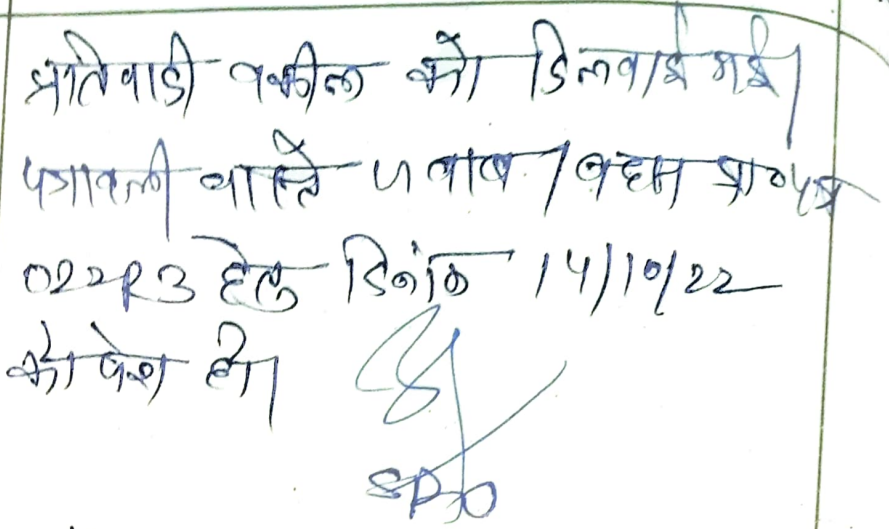 प्रतिवादी वकील को दिलवाई गई।
पत्रावली वास्ते जवाब / बहस प्रा० पत्र
022R3 हेतु दिनांक 14/10/22
को पेश हो।
SDO